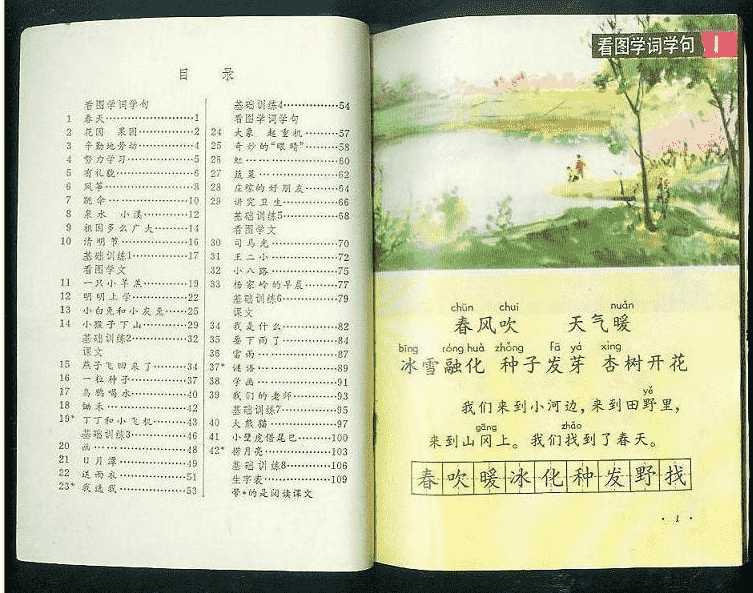 目 录
看图学词学句
1 春天……………1
2 花园 果园……………2
3 辛勤地劳动……………4
4 努力学习……………5
5 有礼貌……………6
6 风筝……………8
7 跳伞……………10
8 泉水 小溪……………12
9 祖国多么广大……………14
10 清明节……………16
基础训练1……………17
看图学文
11 一只小羊羔……………19
12 明明上学……………22
13 小白兔和小灰兔……………25
14 小猴子下山……………29
基础训练2……………32
课文
15 燕子飞回来了……………34
16 一粒种子……………37
17 乌鸦喝水……………40
18 锄禾……………42
19* 丁丁和小飞机……………43
基础训练3……………46
20 画……………48
21 日月潭……………49
22 送雨衣……………51
23* 我选我……………53
基础训练4……………54
看图学词学句
24 大象 起重机……………57
25 奇妙的“眼睛”……………58
26 虹……………60
27 蔬菜……………62
28 庄稼的好朋友……………64
29 讲究卫生……………66
基础训练5……………68
看图学文
30 司马光……………70
31 王二小……………72
32 小八路……………75
33 杨家岭的早晨……………77
基础训练6……………79
课文
34 我是什么……………82
35 要下雨了……………84
36 雷雨……………87
37* 谜语……………89
38 学画……………91
39 我们的老师……………93
基础训练7……………95
40 大熊猫……………97
41 小壁虎借尾巴……………100
42* 捞月亮……………103
基础训练8……………106
生字表……………109
带*的是阅读课文
看图学词学句 1
chūn chuī nuǎn
春风吹 天气暖
bīng róng huà zhǒng fā yá xìng
冰雪融化 种子发芽 杏树开花
yě
我们来到小河边，来到田野里，
gāng zhǎo
来到山冈上。我们找到了春天。
春吹暖冰化种发野找
· 1 ·